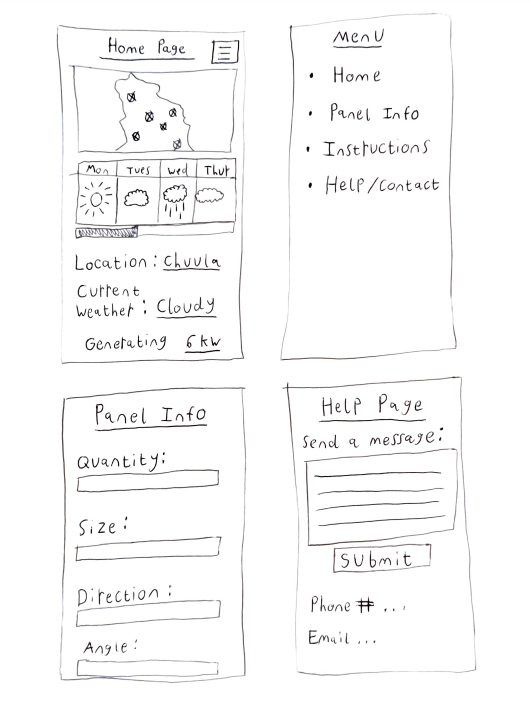 Home Page
Mon Tues Wed Thur
Location: Chuula
Current
Weather: Cloudy
Generating 6 kW
Menu
• Home
• Panel Info
• Instructions
• Help/Contact
Panel Info
Quantity:
Size:
Direction:
Angle:
Help Page
Send a message:
Submit
Phone # ...
Email ...